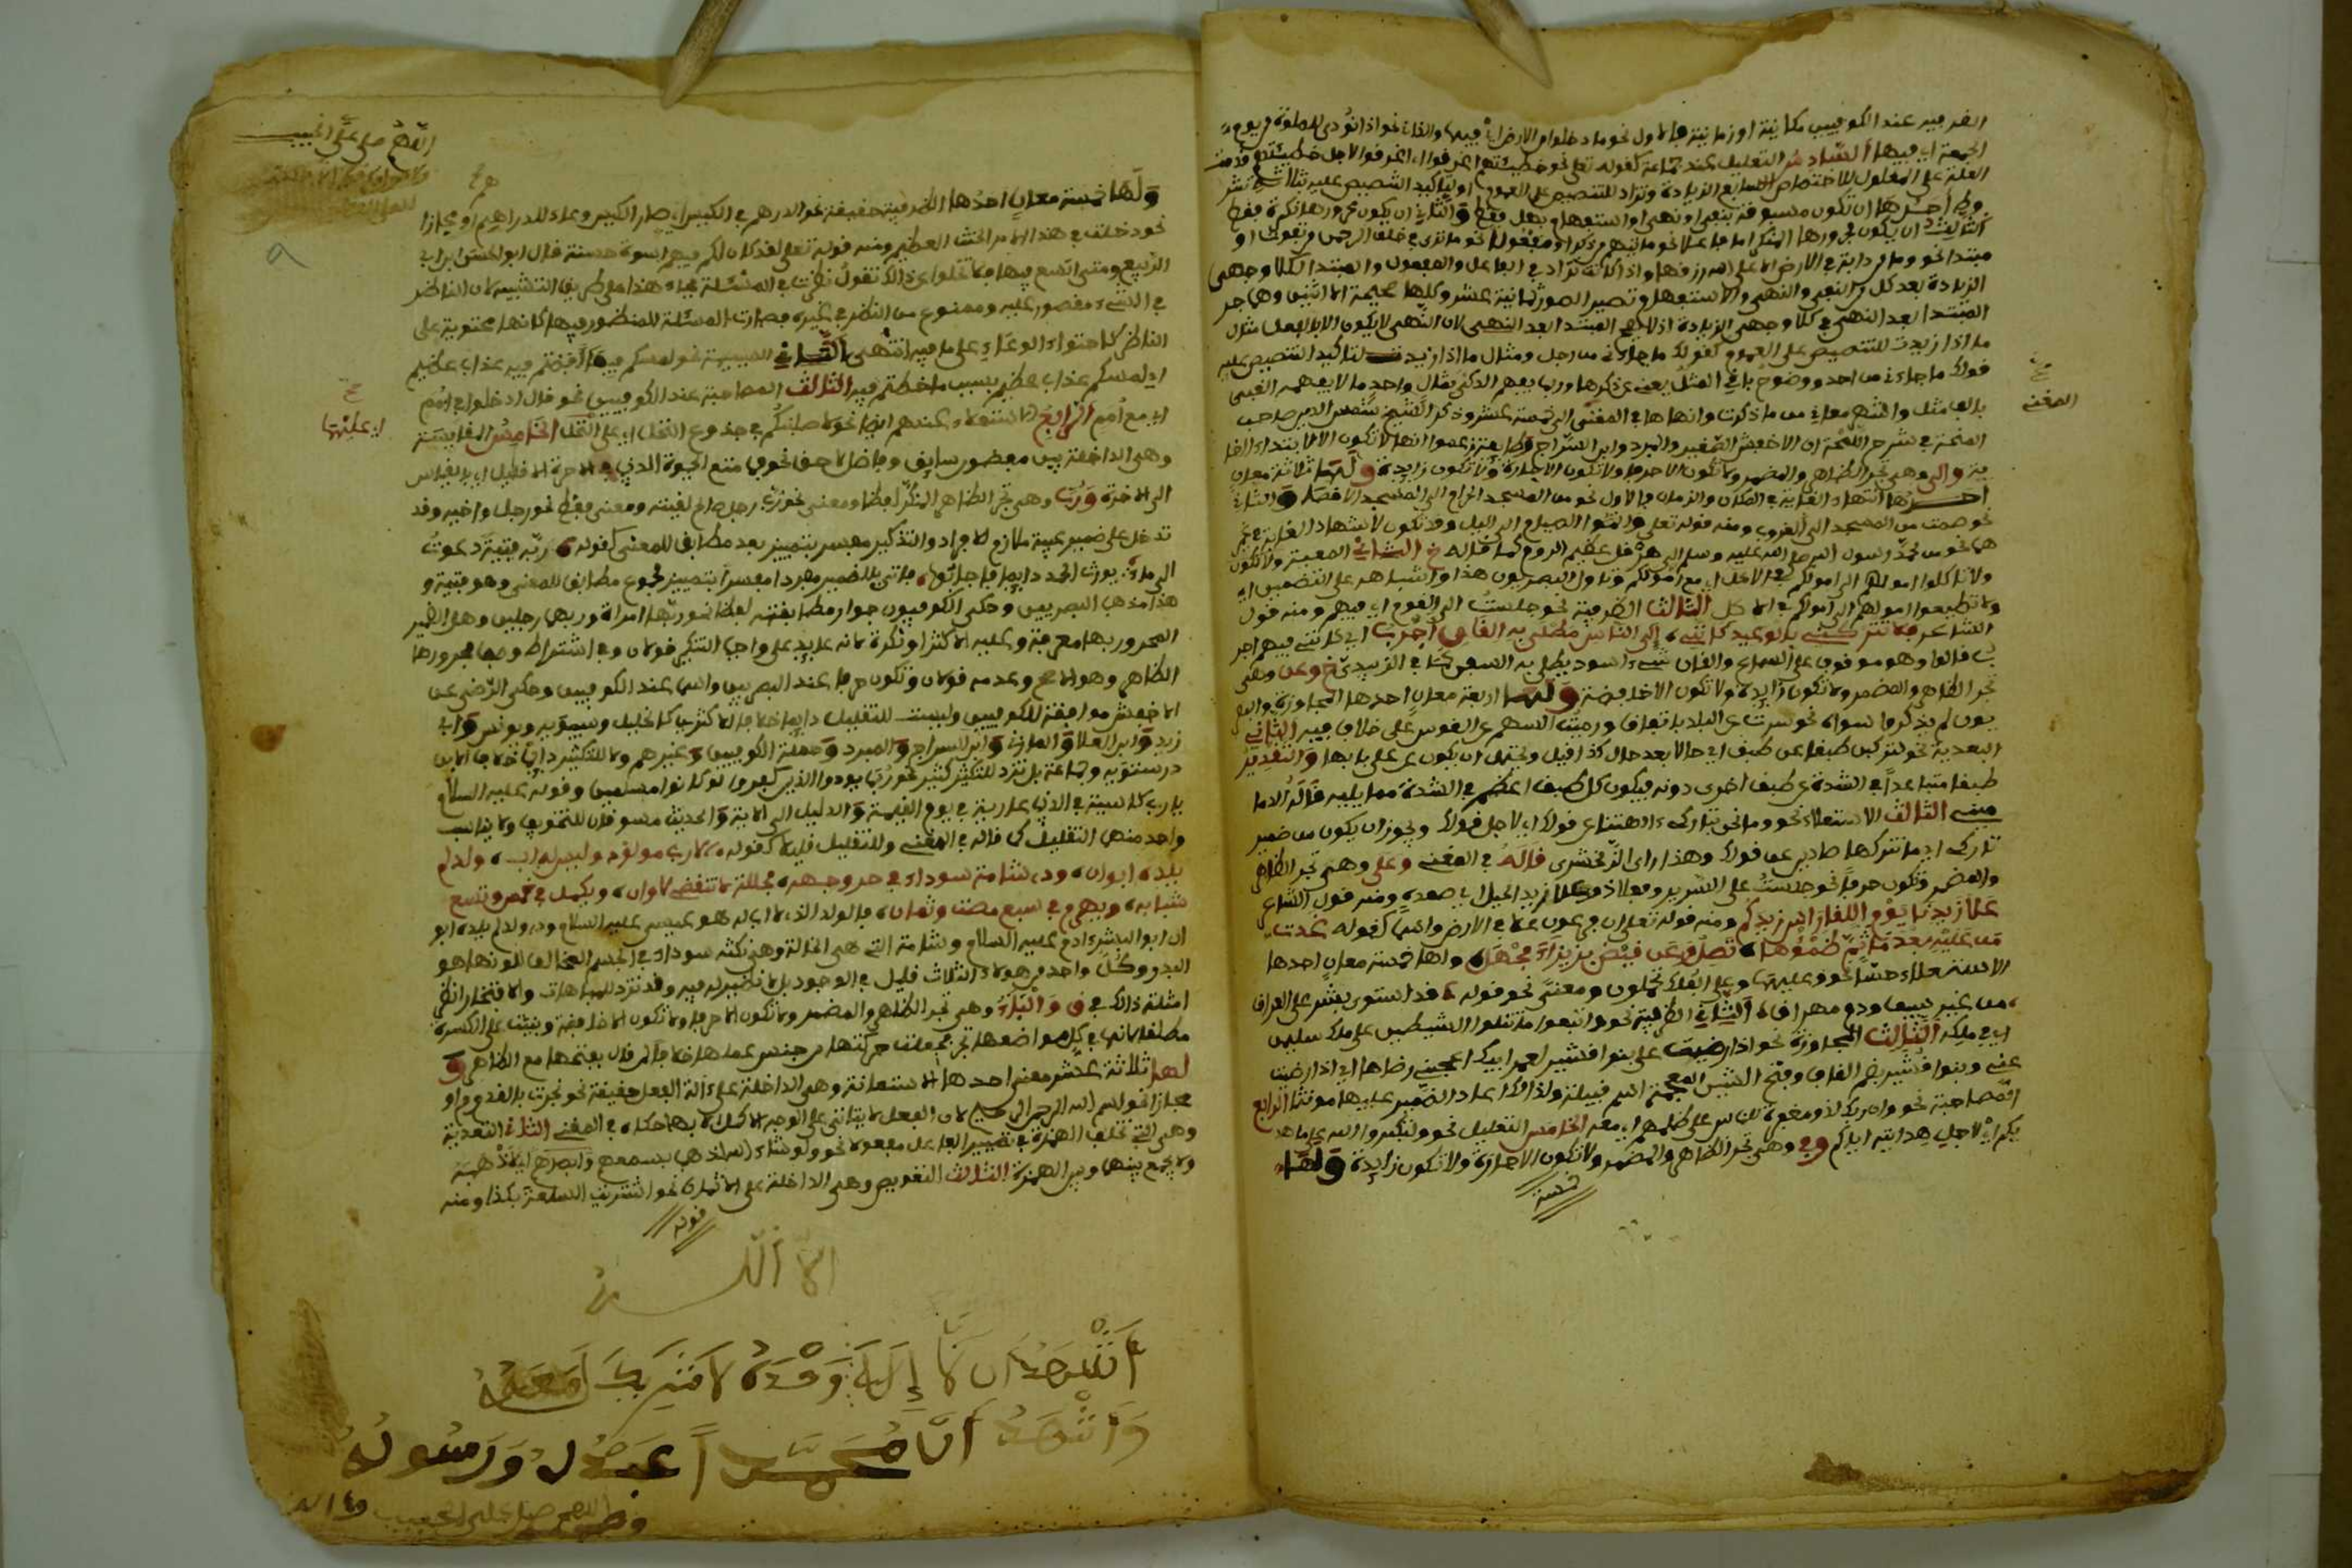 الظرفية عند الكوفيين مكانية او زمانية فالاول نحو ماذا خلقوا من الارض اي فيها والثاني نحو اذا نودي للصلوة من يوم
الجمعة اي فيها السادس التعليل عند جماعة كقوله تعلى نحو مما خطيئتهم اغرقوا اي اغرقوا لاجل خطيئتهم
العلة على المعلول للاختصاص السابع الزيادة وتزاد للتنصيص على العموم او لتأكيد التنصيص عليه بثلاثة
احدها ان تكون مسبوقة بنفي او نهي او استفهام بهل فقط والثاني ان يكون مجرورها نكرة فقط
الثالث ان يكون مجرورها المنكر اما فاعلا نحو ما ياتيهم من ذكر او مفعولا نحو ما ترى في خلق الرحمن من تفوت او
مبتدا نحو وما من دابة في الارض الا على الله رزقها واذا كانت تزاد في الفاعل والمفعول والمبتدا
الزيادة بعد كل من النفي والنهي والاستفهام وتصير الصور ثمانية عشر وكلها صحيحة الا اثنين وهي جر
المبتدا بعد النهي في كلا وجهي الزيادة اذ لا يقع المبتدا بعد النهي لان النهي لا يكون الا بالفعل مثال
ما اذا زيدت للتنصيص على العموم كقولك ما جاءني من رجل ومثال ما اذا زيدت لتاكيد التنصيص عليه
قولك ما جاءني من احد ووضوح باقي المثل يغني عن ذكرها وربما يفهم الذكي بمثال واحد ما لا يفهمه الغبي
بالف مثل وانتهى معاني من ما ذكرت وانهاها في المغني الى خمسة عشر وذكر الشيخ شمس الدين صاحب
المنحة في شرح اللمحة ان الاخفش الصغير والمبرد وابن السراج وطائفة زعموا انها لا تكون الا لابتداء الغا
ية والى وهي تجر الظاهر والمضمر ولا تكون الا حرفا ولا تكون الا جارة ولا تكون زايدة ولها ثلاثة معان
احدها انتهاء الغاية في المكان والزمان فالاول نحو من المسجد الحرام الى المسجد الاقصا والثاني
نحو صمت من المسجد الى الغروب ومنه قوله تعلى واتموا الصيام الى اليل وقد تكون لانتهاء الغاية في غير
هما نحو من محمد رسول الله صلى الله عليه وسلم الى هرقل عظيم الروم كما قاله خ الثاني المعية
ولا تاكلوا اموالهم الى اموالكم اي مع اموالكم وتاول البصريون هذا واشباهه على التضمين اي
ولا تضيفوا اموالهم الى اموالكم في الاكل الثالث الظرفية نحو جلست الى القوم اي فيهم ومنه قول
الشاعر فلا تتركني بالوعيد كانني الى الناس مطلي به القار اجرب اي كانني فيهم اجر
ب قالوا وهو موقوف على السماع والقار شيء اسود يطلى به السفن كما في الزبيدي خ وعن وهي
تجر الظاهر والمضمر ولا تكون زايدة ولا تكون الا خافضة ولها اربعة معان احدها المجاوزة والبصر
يون لم يذكروا سواه نحو سرت عن البلد باتفاق ورميت السهم عن القوس على خلاف فيه الثاني
البعدية نحو لتركبن طبقا عن طبق اي حالا بعد حال كذا قيل ويحتمل ان يكون عن على بابها والتقدير
طبقا متباعدا في الشدة عن طبق اخرى دونه فيكون كل طبق اعظم في الشدة مما يليه قاله الدما
ميني الثالث الاستعلاء نحو وما نحن بتاركي ءالهتنا عن قولك اي لاجل قولك ويجوز ان يكون من ضمير
تاركي اي ما نتركها صادرين عن قولك وهذا راى الزمخشري قاله في المغني وعلى وهي تجر الظاهر
والمضمر وتكون حرفا نحو جلست على السرير وفعلا نحو علا زيد الجبل اي صعده ومنه قول الشاعر
علا زيدنا يوم اللقا راس زيدكم ومنه قوله تعلى ان فرعون علا في الارض واسما كقوله غدت
من عليه بعد ما تم ظمؤها تصل وعن قيض بزيزاء مجهل ولها خمسة معان احدها
الاستعلاء حسا نحو وعليها وعلى الفلك تحملون ومعنى نحو قوله قد استوى بشر على العراق
من غير سيف ودم مهراق الثاني الظرفية نحو واتبعوا ما تتلوا الشيطين على ملك سليمن
اي في ملكه الثالث المجاوزة نحو اذا رضيت علي بنوا قشير لعمر ابيك اعجبني رضاها اي اذا رضيت
عني وبنوا قشير بضم القاف وفتح الشين المعجمة اسم قبيلة ولذالك اعاد الضمير عليها مونثا الرابع
المصاحبة نحو وان ربك لذو مغفرة للناس على ظلمهم اي معه الخامس التعليل نحو ولتكبروا الله على ما هد
يكم اي لاجل هدايته اياكم وفي وهي تجر الظاهر والمضمر ولا تكون الا جارة ولا تكون زايدة ولها
خمسة
المغني
اللهم صل على الحبيب
ولها خمسة معان احدها الظرفية حقيقة نحو الدرهم في الكيس اي صار الكيس وعاء للدراهم او مجازا
نحو دخلت في هذا الامر العظيم ومنه قوله تعلى لقد كان لكم فيهم اسوة حسنة قال ابو الحسن ابن ابي
الربيع ومتى اتسع فيها فلا تخلوا عن ذالك تقول نظرت في المسئلة فجاء هذا على طريق التشبيه لان الناظر
في الشيء مقصور عليه وممنوع من النظر في غيره فصارت المسئلة للمنظور فيها كانها محتوية على
الناظر كاحتواء الوعاء على ما فيه انتهى الثاني السببية نحو لمسكم فيما افضتم فيه عذاب عظيم
اي لمسكم عذاب عظيم بسبب ما خضتم فيه الثالث المصاحبة عند الكوفيين نحو قال ادخلوا في امم
اي مع امم الرابع الاستعلاء عندهم ايضا نحو لاصلبنكم في جذوع النخل اي على النخل الخامس المقايسة
اي عليها
وهي الداخلة بين مفضول سابق وفاضل لاحق نحو فما متع الحيوة الدنيا في الاخرة الا قليل اي بالقياس
الى الاخرة ورب وهي تجر الظاهر المنكر لفظا ومعنى نحو رب رجل صالح لقيته ومعنى فقط نحو رجل واخيه وقد
تدخل على ضمير غيبة ملازم الافراد والتذكير مفسر بتمييز بعده مطابق للمعنى كقوله ربه فتية دعوت
الى ما يورث الحمد دايما فاجابوا فاتى بالضمير مفردا مفسرا بتمييز مجموع مطابق للمعنى وهو فتية و
هذا مذهب البصريين وحكى الكوفيون جواز مطابقته لفظا نحو ربها امراة وربهما رجلين وهل الضمير
المجرور بها معرفة وعليه الاكثر او نكرة لانه عايد على واجب التنكير قولان وفي اشتراط وصف مجرورها
الظاهر وهو الاصح وعدمه قولان وتكون حرفا عند البصريين واسما عند الكوفيين وحكى الرضي عن
الاخفش موافقة للكوفيين وليست للتقليل دايما خلافا للاكثرين كالخليل وسيبويه ويونس وابي
زيد وابن العلا والمازني وابن السراج والمبرد وجملة الكوفيين وغيرهم ولا للتكثير دايما خلافا لابن
درستويه وجماعة بل ترد للتكثير كثير نحو ربما يود الذين كفروا لو كانوا مسلمين وقوله عليه السلام
يا رب كاسية في الدنيا عارية في يوم القيمة والدليل ان الاية والحديث مسوقان للتخويف ولا يناسب
واحد منهما التقليل كما قاله في المغني وللتقليل قليلا كقوله الا رب مولود وليس له اب وذي ولد لم
يلده ابوان وذي شامة سوداء في حر وجهه مجللة لا تنقضي لاوان ويكمل في خمس وتسع
شبابه ويهرم في سبع مضت وثمان فالمولود الذي لا اب له هو عيسى عليه السلام وذي ولد لم يلده ابو
ان ابو البشر ادم عليه السلام وشامة التي هي الخالة وهي نكتة سوداء في الجسم المخالف للونها هو
البدر وكل واحد من هولاء الثلاث قليل في الوجود بل لا نضير له فيه وقد ترد للمباهات والافتخار انظر
امثلة ذالك في ق والباء وهي تجر الظاهر والمضمر ولا تكون الا حرفا ولا تكون الا خافضة وبنيت على الكسرة
مطلقا لانها في كل مواضعها تجر فجعلت حركتها من جنس عملها خلافا لمن قال بفتحها مع الظاهر و
لها ثلاثة عشر معنى احدها الاستعانة وهي الداخلة على ءالة الفعل حقيقة نحو نجرت بالقدوم او
مجازا نحو بسم الله الرحمن الرحيم لان الفعل لا يتاتى على الوجه الاكمل الا بها حكاه في المغني الثاني التعدية
وهي التي تخلف الهمزة في تصيير الفاعل مفعولا نحو ولو شاء الله لذهب بسمعهم وابصارهم اي لاذهبه
ولا يجمع بينها وبين الهمزة الثالث التعويض وهي الداخلة على الاثمان نحو اشتريت السلعة بكذا ومنه
قوله
الا الله
اشهد ان لا إله وحده لا شريك له
واشهد ان محمدا عبده ورسوله
اللهم صل على الحبيب